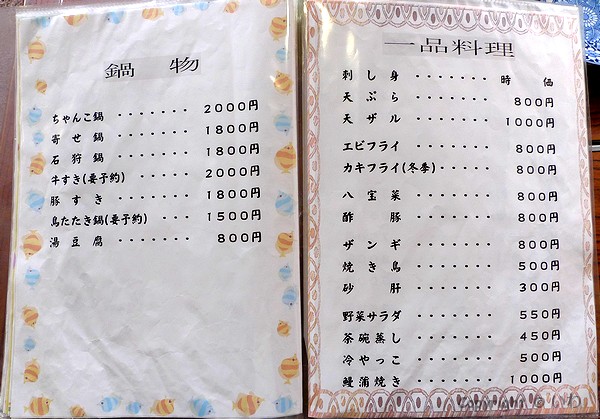 鍋 物
ちゃんこ鍋 ・・・・・・・ 2000円
寄せ鍋 ・・・・・・・ 1800円
石狩鍋 ・・・・・・・ 1800円
牛すき(要予約) ・・・・・ 2000円
豚すき ・・・・・・・ 1800円
鳥たたき鍋(要予約) ・・・・ 1500円
湯豆腐 ・・・・・・・ 800円
一品料理
刺し身 ・・・・・・・ 時 価
天ぷら ・・・・・・・ 800円
天ザル ・・・・・・・ 1000円
エビフライ ・・・・・・・ 800円
カキフライ(冬季)・・・・・ 800円
八宝菜 ・・・・・・・ 800円
酢豚 ・・・・・・・ 800円
ザンギ ・・・・・・・ 800円
焼き鳥 ・・・・・・・ 500円
砂肝 ・・・・・・・ 300円
野菜サラダ ・・・・・・・ 550円
茶碗蒸し ・・・・・・・ 450円
冷やっこ ・・・・・・・ 500円
鰻蒲焼き ・・・・・・・ 1000円